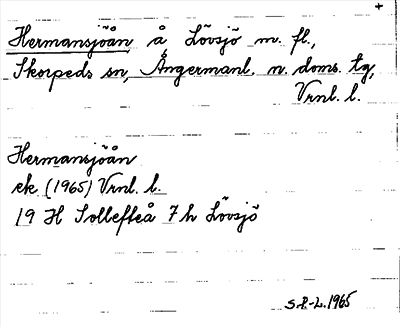 +
Hermansjöån å Lövsjö m. fl.,
Skorpeds sn, Ångermanl. n. doms. tg,
Vrnl. l.
Hermansjöån
ek (1965) Vrnl. l.
19 H Sollefteå 7 h Lövsjö
S.P.-L. 1965